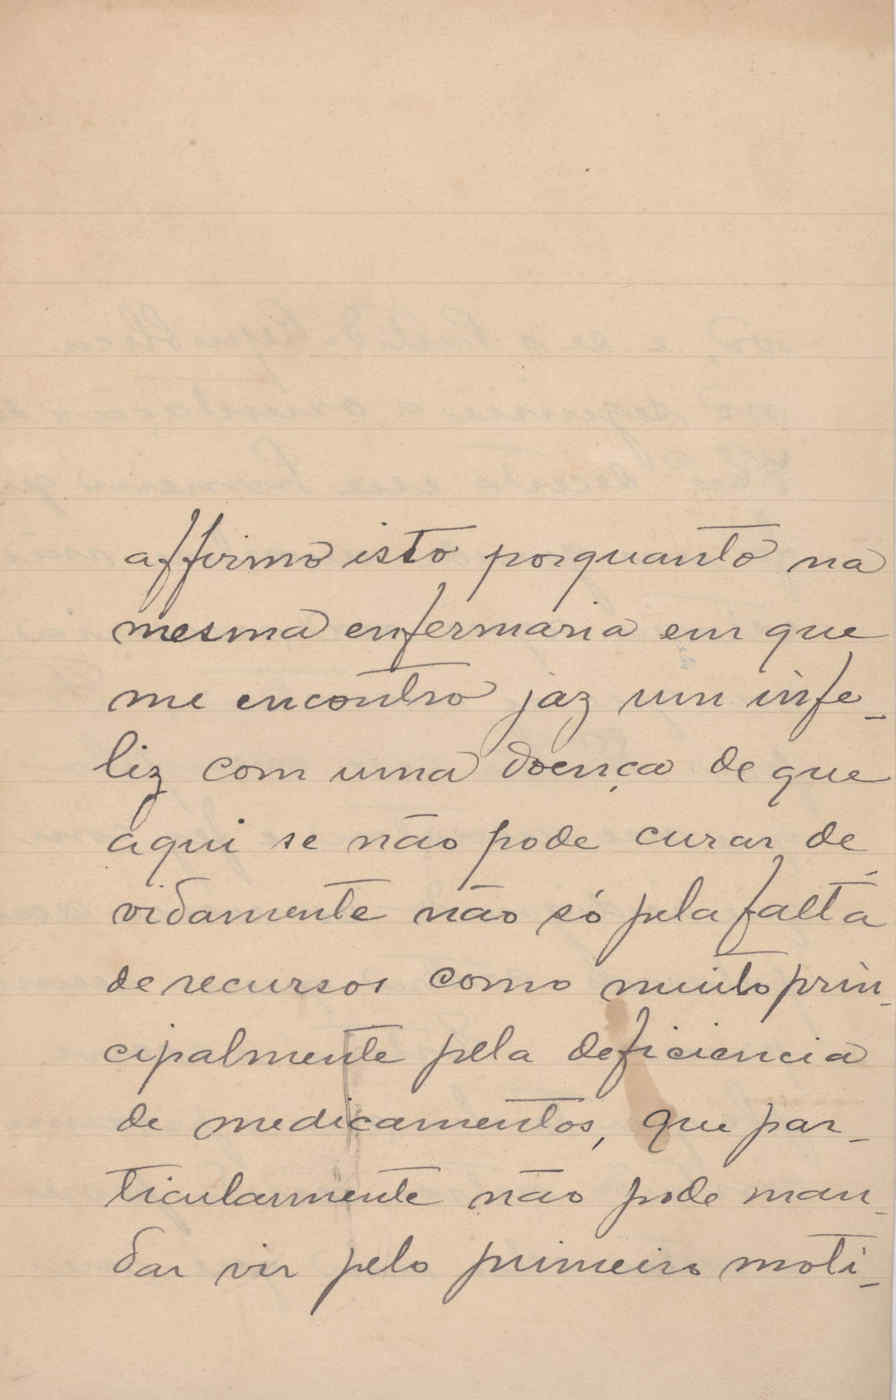 affirmo isto porquanto na
mesma enfermaria em que
me encontro jaz um infe-
liz com uma doença de que
aqui se não pode curar de
vidamente não só pela falta
de recursos como muito prin-
cipalmente pela deficiencia
de medicamentos, que par-
ticularmente não pode man-
dar vir pelo primeiro moti-